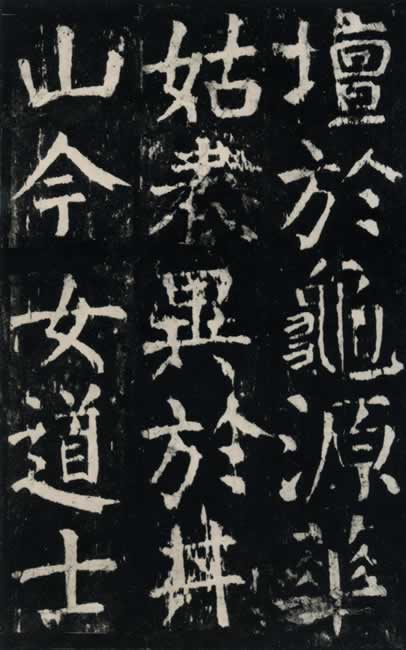 壇於龜源華
姑表異於井
山今女道士